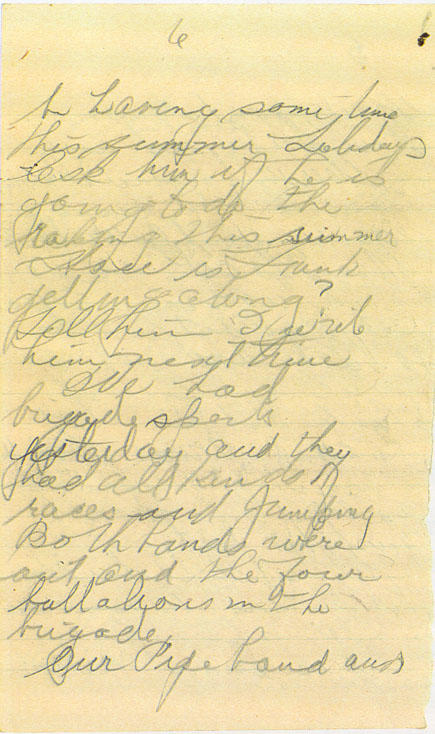 6
be having some time
this summer holidays
ask him if he is
going to do the
raking this summer
How is Frank
getting along?
Tell him I write
him next time
We had
brigade sports
yesterday and they
had all kinds of
races and jumping
Both bands were
out and the four
battalions in the
brigade
Our Pipe band and